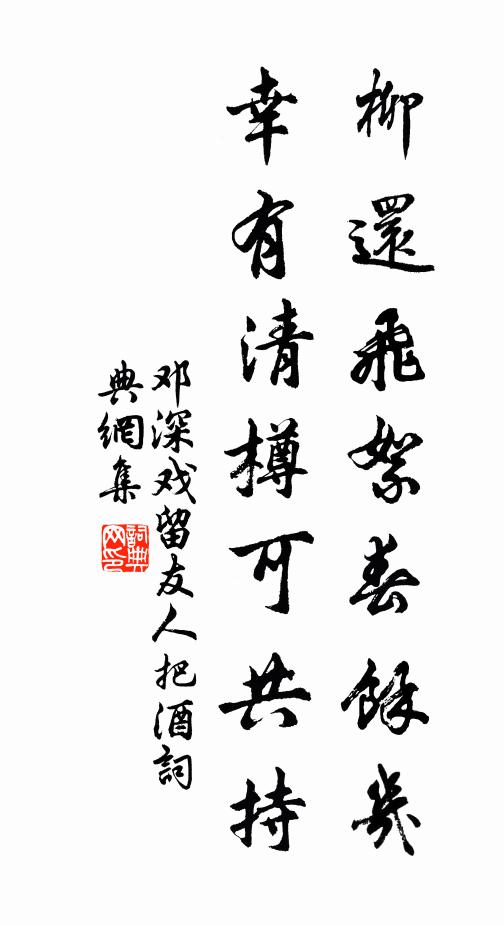 柳還飛絮春餘幾
幸有清樽可共持
邓深戏留友人把酒詞
典網集
詞典网印